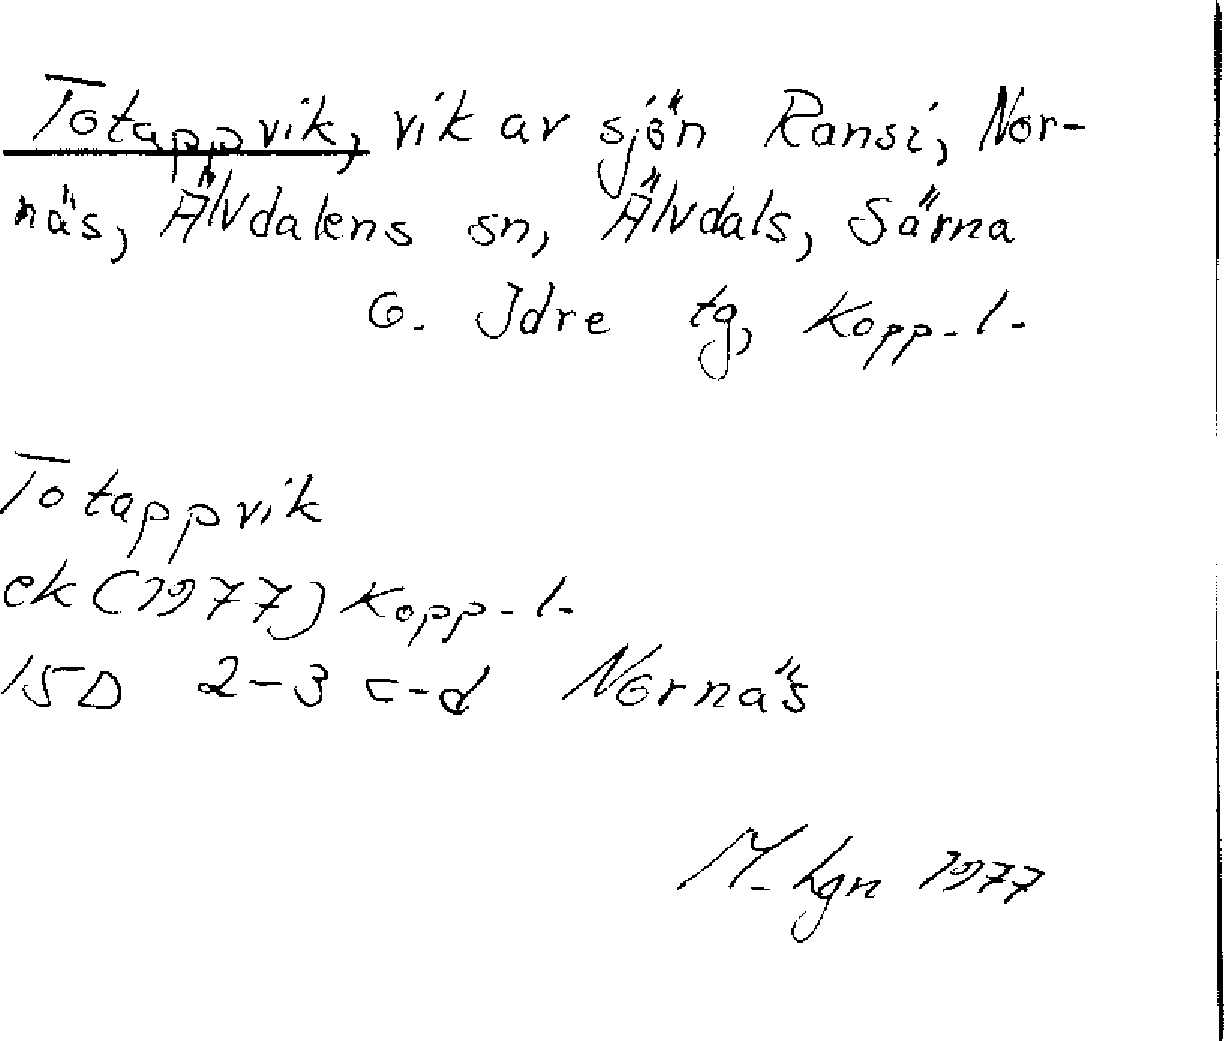 Totappvik, vik av sjön Ransi, Nor-
näs, Älvdalens sn, Älvdals, Särna
o. Idre tg, Kopp-l-
Totappvik
ek (1977) Kopp-l-
15D 2-3 c-d Nornäs
M-hgn 1977